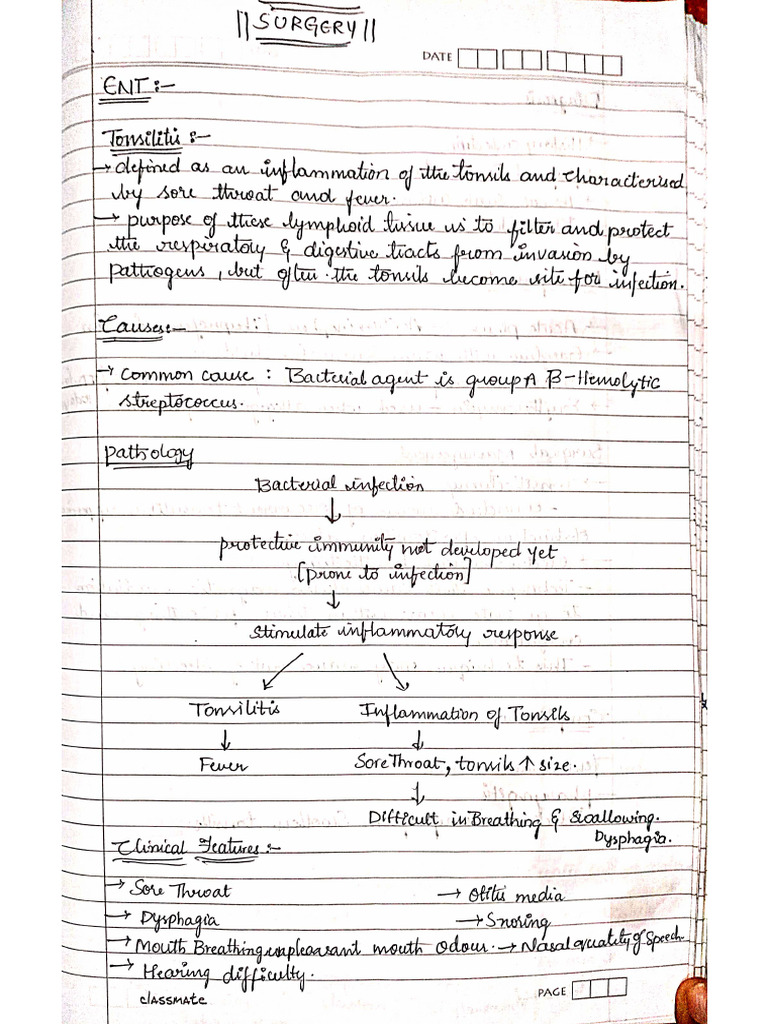 ||SURGERY||
DATE
ENT:-
Tonsilitis:-
→ defined as an inflammation of the tonsils and characterised
by sore throat and fever.
→ purpose of these lymphoid tissue is to filter and protect
the respiratory & digestive tracts from invasion by
pathogens, but often the tonsils become site for infection.
Causes:-
→ Common cause : Bacterial agent is group A β-Hemolytic
streptococcus.
pathology
Bacterial infection
↓
protective immunity not developed yet
[prone to infection]
↓
stimulate inflammatory response
↙ ↘
Tonsilitis Inflammation of Tonsils
↓ ↓
Fever Sore Throat, tonsils ↑ size.
↓
Difficult in Breathing & Swallowing.
Dysphagia.
Clinical Features:-
→ Sore Throat → Otitis media
→ Dysphagia → Snoring
→ Mouth Breathing unpleasant mouth odour. → Nasal quality of speech
→ Hearing difficulty.
classmate
PAGE